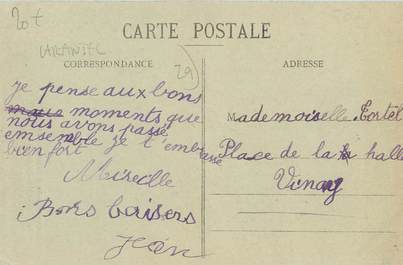 20t
CARTE POSTALE
CORRESPONDANCE
ADRESSE
29
je pense aux bons
moments que
nous avons passé
ensemble je t'embrasse
bien fort
Mireille
Bons baisers
Jean
Mademoiselle Tortel
Place de la halle
Vinay